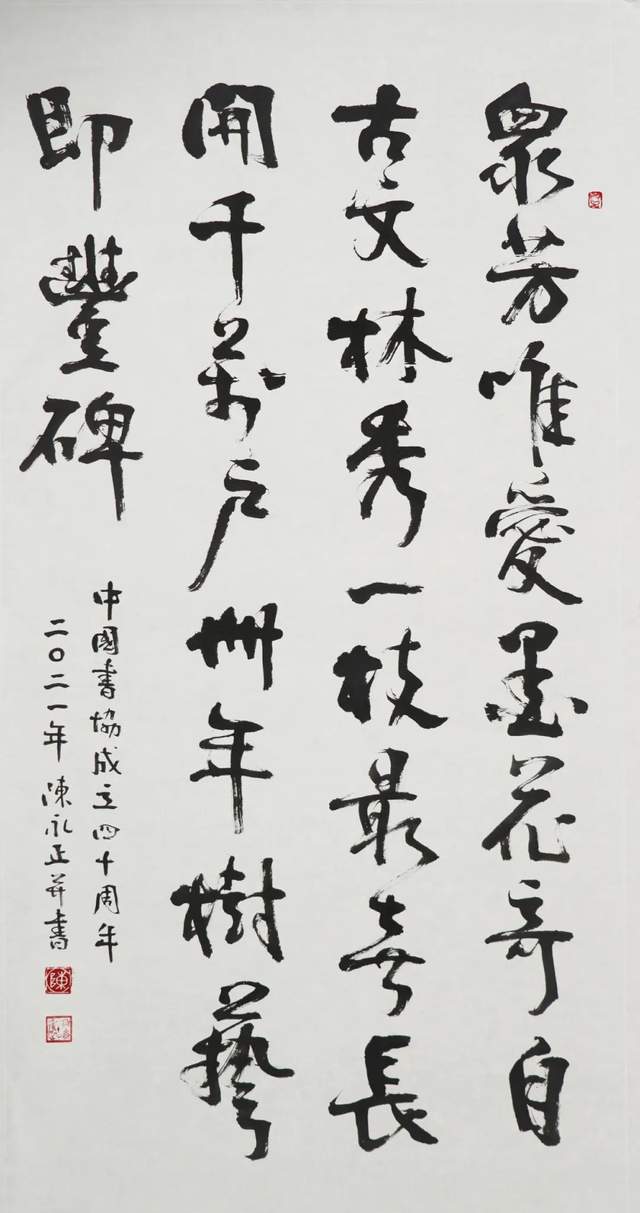 眾芳唯愛墨花奇自
古文林秀一枝最喜長
開千萬戶卌年樹藝
即豐碑
中國書協成立四十周年
二〇二一年 陳永正并書
陳